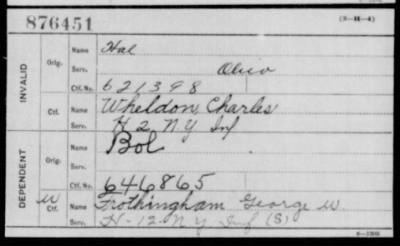 876451 (3-H-4)
INVALID
Orig.
Name Hal
Serv. Ohio
Ctf. No. 621398
Ctf.
Name Wheldon, Charles
Serv. H 2 N.Y. Inf
DEPENDENT
Orig.
Name Bol
Serv.
Ctf. No. 646865
W Ctf.
Name Frothingham George W.
Serv. H-12-N Y Inf (S)